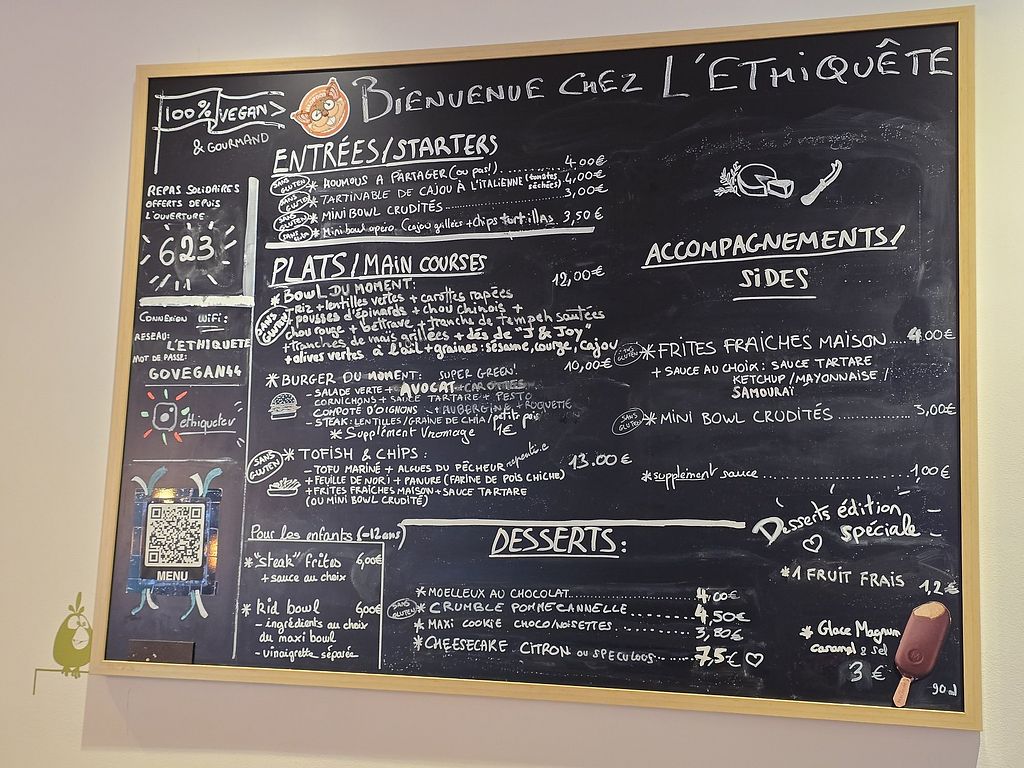 BIENVENUE CHEZ L'ETHIQUÊTE
100% VEGAN
& GOURMAND
REPAS SOLIDAIRES
OFFERTS DEPUIS
L'OUVERTURE
623
CONNEXION WIFI:
RESEAU:
L'ETHIQUETE
MOT DE PASSE:
GOVEGAN44
ethiquetev
MENU
ENTRÉES/STARTERS
SANS GLUTEN * HOUMOUS A PARTAGER (ou pas!) 4.00€
SANS GLUTEN * TARTINABLE DE CAJOU À L'ITALIENNE (tomates séchées) 4,00€
SANS GLUTEN * MINI BOWL CRUDITÉS 3,00€
* Mini bowl apéro (cajou grillées + chips tortillas 3,50€
PLATS/MAIN COURSES
* BOWL DU MOMENT: 12,00€
SANS GLUTEN
RIZ + lentilles vertes + carottes rapées
+ pousses d'épinards + chou chinois +
chou rouge + betterave + tranche de tempeh sautées
+ tranches de maïs grillées + dés de "J & Joy"
+ olives vertes à l'ail + graines: sésame, courge, cajou
* BURGER DU MOMENT: SUPER GREEN! 10,00€
- SALADE VERTE + AVOCAT + CAROTTES
CORNICHONS + SAUCE TARTARE + PESTO
COMPOTE D'OIGNONS + AUBERGINE + ROQUETTE
- STEAK: LENTILLES/GRAINE DE CHIA/petit pois
* Supplément Vromage 1€
SANS GLUTEN * TOFISH & CHIPS: 13.00€
- TOFU MARINÉ + ALGUES DU PÊCHEUR repenti.e
+ FEUILLE DE NORI + PANURE (FARINE DE POIS CHICHE)
+ FRITES FRAÎCHES MAISON + SAUCE TARTARE
(OU MINI BOWL CRUDITÉ)
Pour les enfants (-12ans)
* "steak" frites 6,00€
+ sauce au choix
* kid bowl 6,00€
- ingrédients au choix
du maxi bowl
- vinaigrette séparée
ACCOMPAGNEMENTS/
SIDES
SANS GLUTEN * FRITES FRAICHES MAISON 4.00€
+ SAUCE AU CHOIX: SAUCE TARTARE
KETCHUP/MAYONNAISE/
SAMOURAÏ
SANS GLUTEN * MINI BOWL CRUDITÉS 3,00€
* supplément sauce 1,00€
DESSERTS:
* MOELLEUX AU CHOCOLAT 4,00€
SANS GLUTEN * CRUMBLE POMME CANNELLE 4,50€
* MAXI COOKIE CHOCO/NOISETTES 3,80€
* CHEESECAKE CITRON OU SPECULOOS 7,5€
Desserts édition
spéciale
* 1 FRUIT FRAIS 1,2€
* Glace Magnum
caramel & sel
3€
90ml